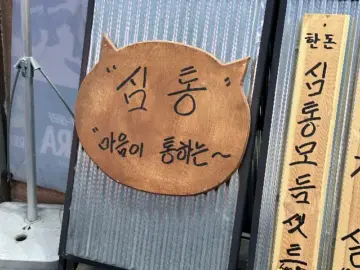 "심통"
"마음이 통하는~
한돈
심통모듬셋트
RA